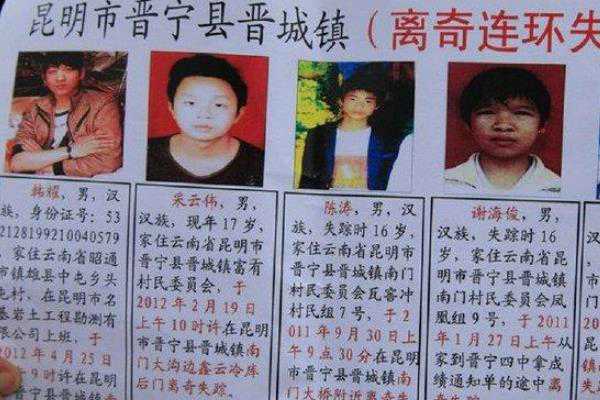 昆明市晋宁县晋城镇（离奇连环失
韩耀，男，汉
族，身份证号：53
2128199210040579
家住云南省昭通
市镇雄县中屯乡头
屯村，在昆明市名
基岩土工程勘测有
限公司上班，于
2012年4月25日
9时许在昆明
采云伟，男，
汉族，现年17岁，
家住云南省昆明市
晋宁县晋城镇富有
村民委员会，于
2012年2月19日
上午10时许在昆明
市晋宁县晋城镇南
门大沟边鑫云冷库
后门离奇失踪。
陈涛，男，汉
族，失踪时16岁，
家住云南省昆明市
晋宁县晋城镇南门
村民委员会瓦窑冲
村民组7号，于2
011年9月30日上
午9点30分在昆明
市晋宁县晋城镇南
门大桥附近离奇失
谢海俊，男，
汉族，失踪时16
岁，家住云南省昆
明市晋宁县晋城镇
南门村民委员会凤
凰组9号，于2011
年1月27日上午从
家到晋宁四中拿成
绩通知单的途中离
奇失踪